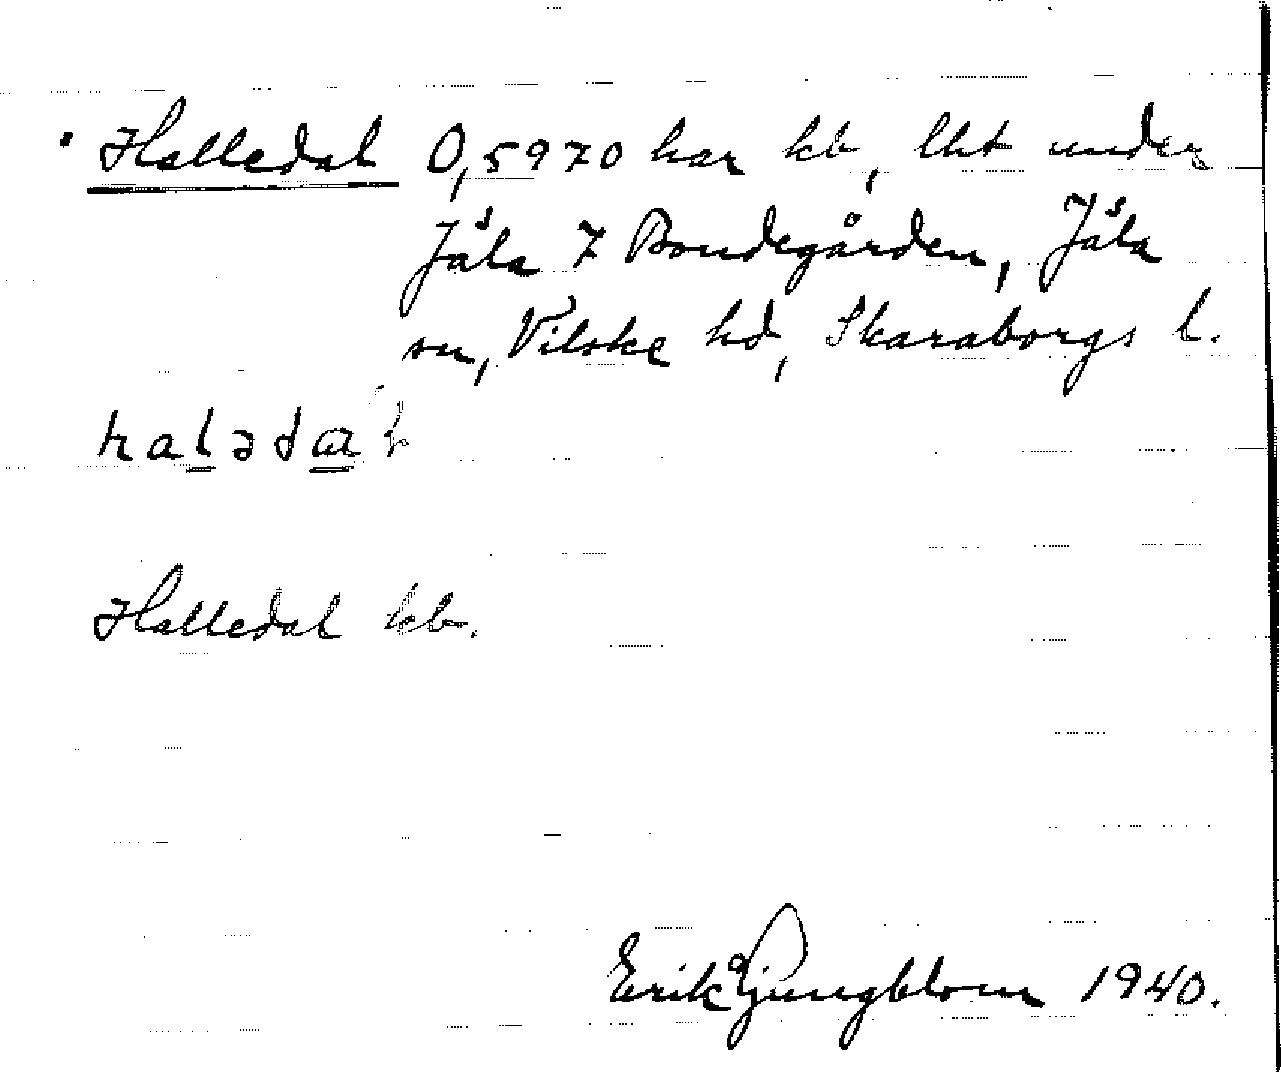 Halledal 0,5970 har kb, lht under
Jäla 7 Bondegården, Jäla
sn, Vilske hd, Skaraborgs l.
halədal
Halledal kb.
Erik Ljungblom 1940.